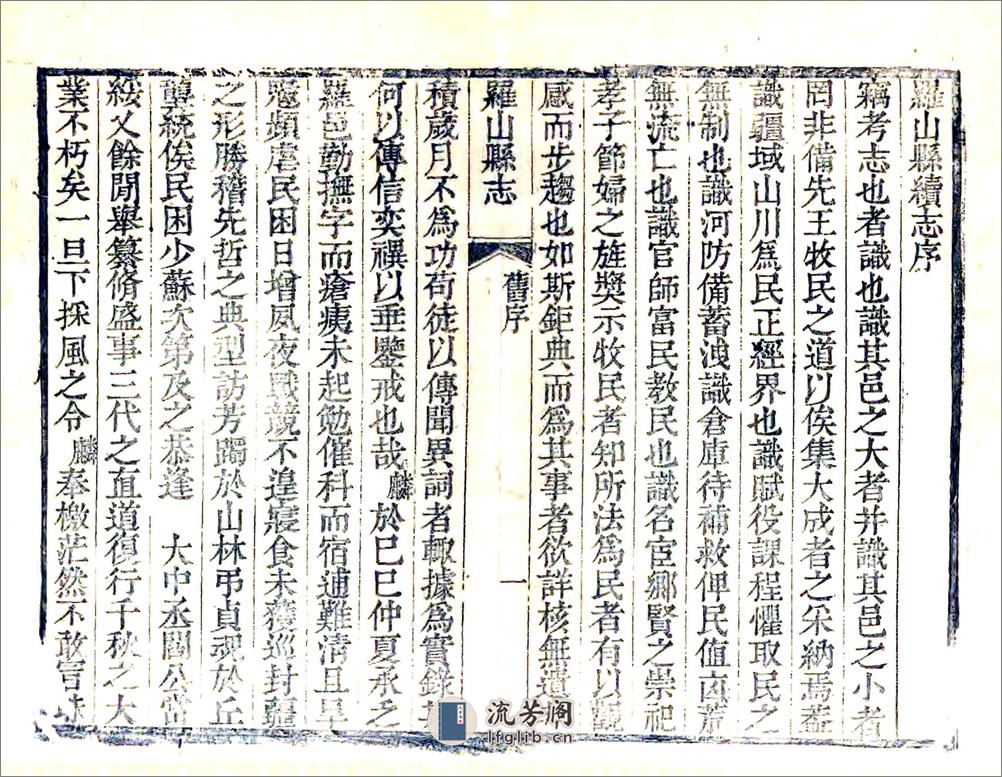 羅山縣續志序
竊考志也者識也識其邑之大者并識其邑之小者
罔非備先王牧民之道以俟集大成者之采納焉葢
識疆域山川為民正經界也識賦役課程懼取民之
無制也識河防備蓄洩識倉庫待補救俾民值凶荒
無流亡也識官師富民教民也識名宦鄉賢之崇祀
孝子節婦之旌獎示牧民者知所法為民者有以觀
感而步趨也如斯鉅典而為其事者欲詳核無遺
羅山縣志 舊序 一
積歲月不為功苟徒以傳聞異詞者輙據為實錄
何以傳信奕禩以垂鑒戒也哉麟於巳巳仲夏承乏
羅邑勤撫字而瘡痍未起勉催科而宿逋難清且旱
寇頻虐民困日增夙夜戰兢不遑寢食未獲巡封疆
之形勝稽先哲之典型訪芳躅於山林弔貞魂於丘
壟統俟民困少蘇次第及之恭逢 大中丞閻公當
綏乂餘閒舉纂脩盛事三代之直道復行千秋之大
業不朽矣一旦下採風之令麟奉檄茫然不敢言
流芳閣
lfglib.cn